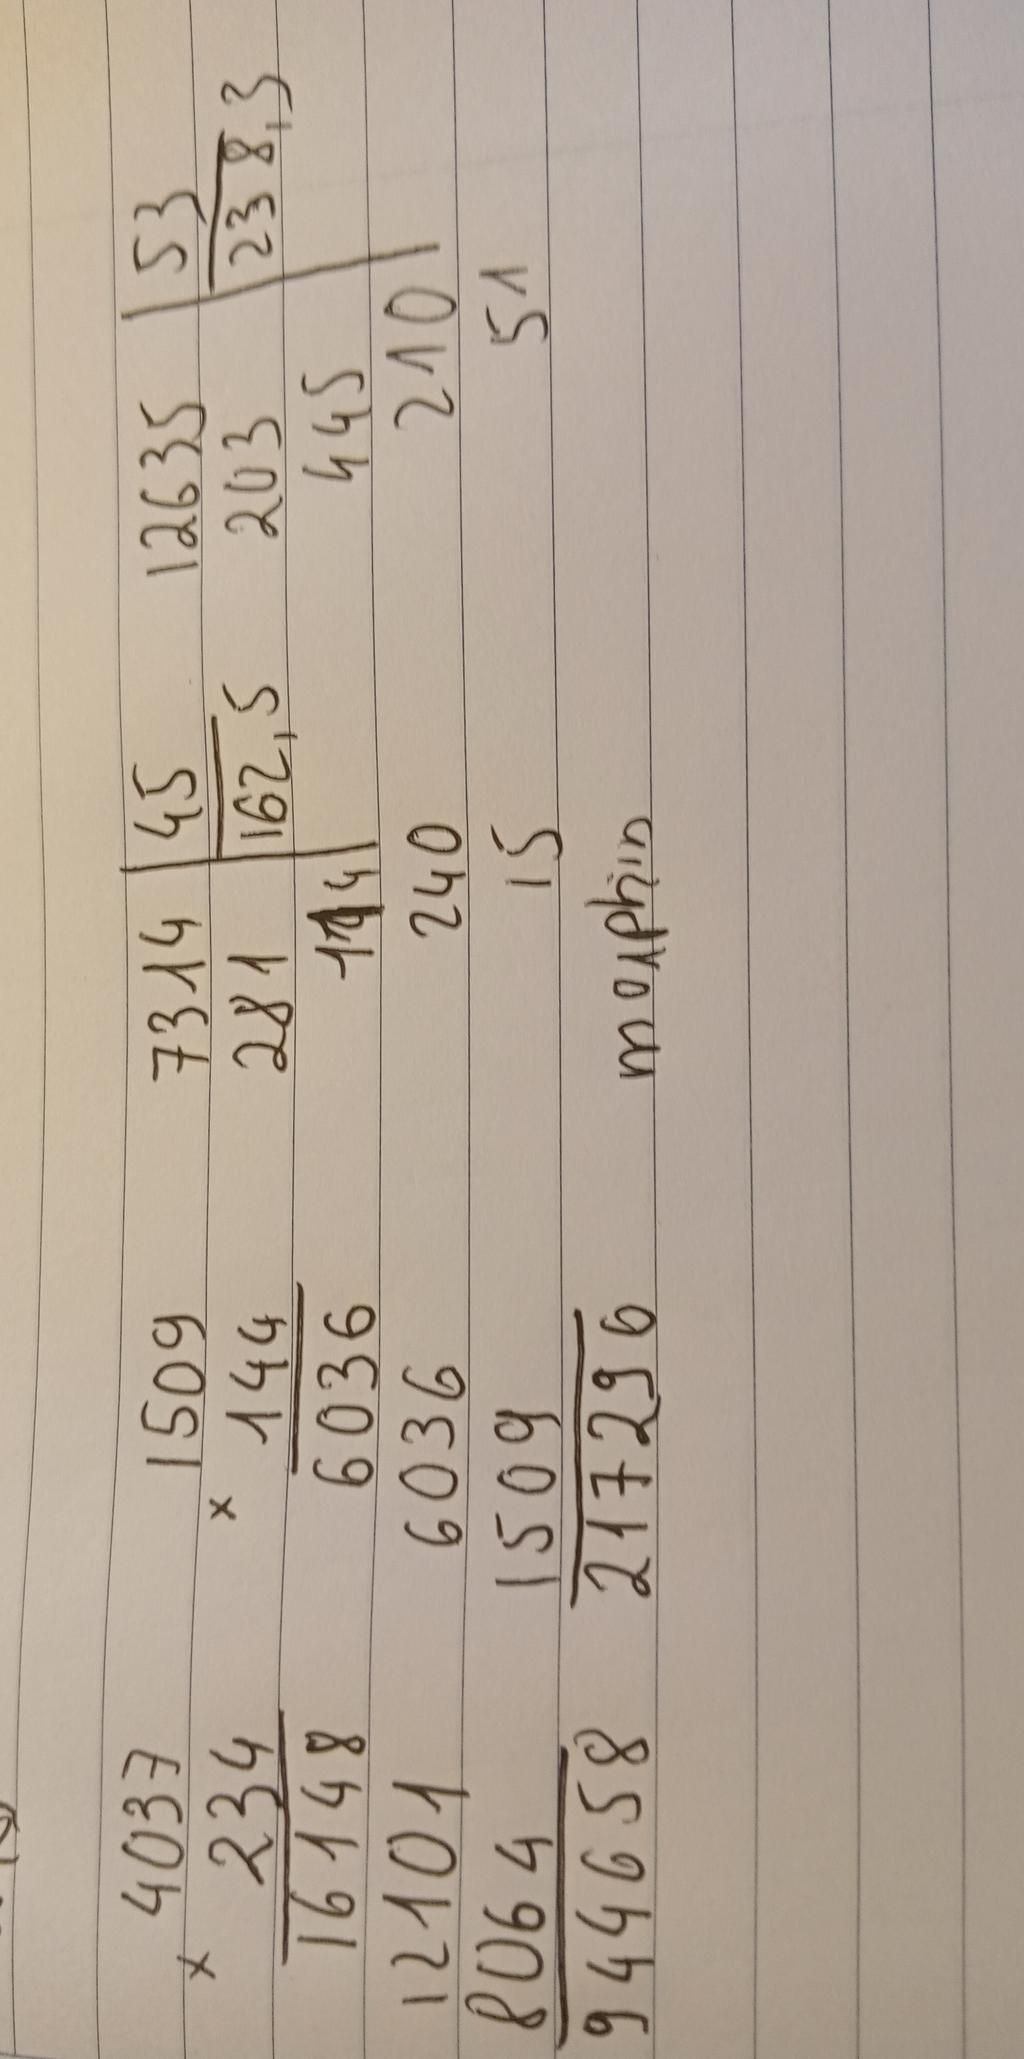 4037 1509 7314 45 12635 53
x 234 x 144 281 162,5 203 238,3
16148 6036 114 445
12101 6036 240 210
8064 1509 15 51
944658 217296 morphin